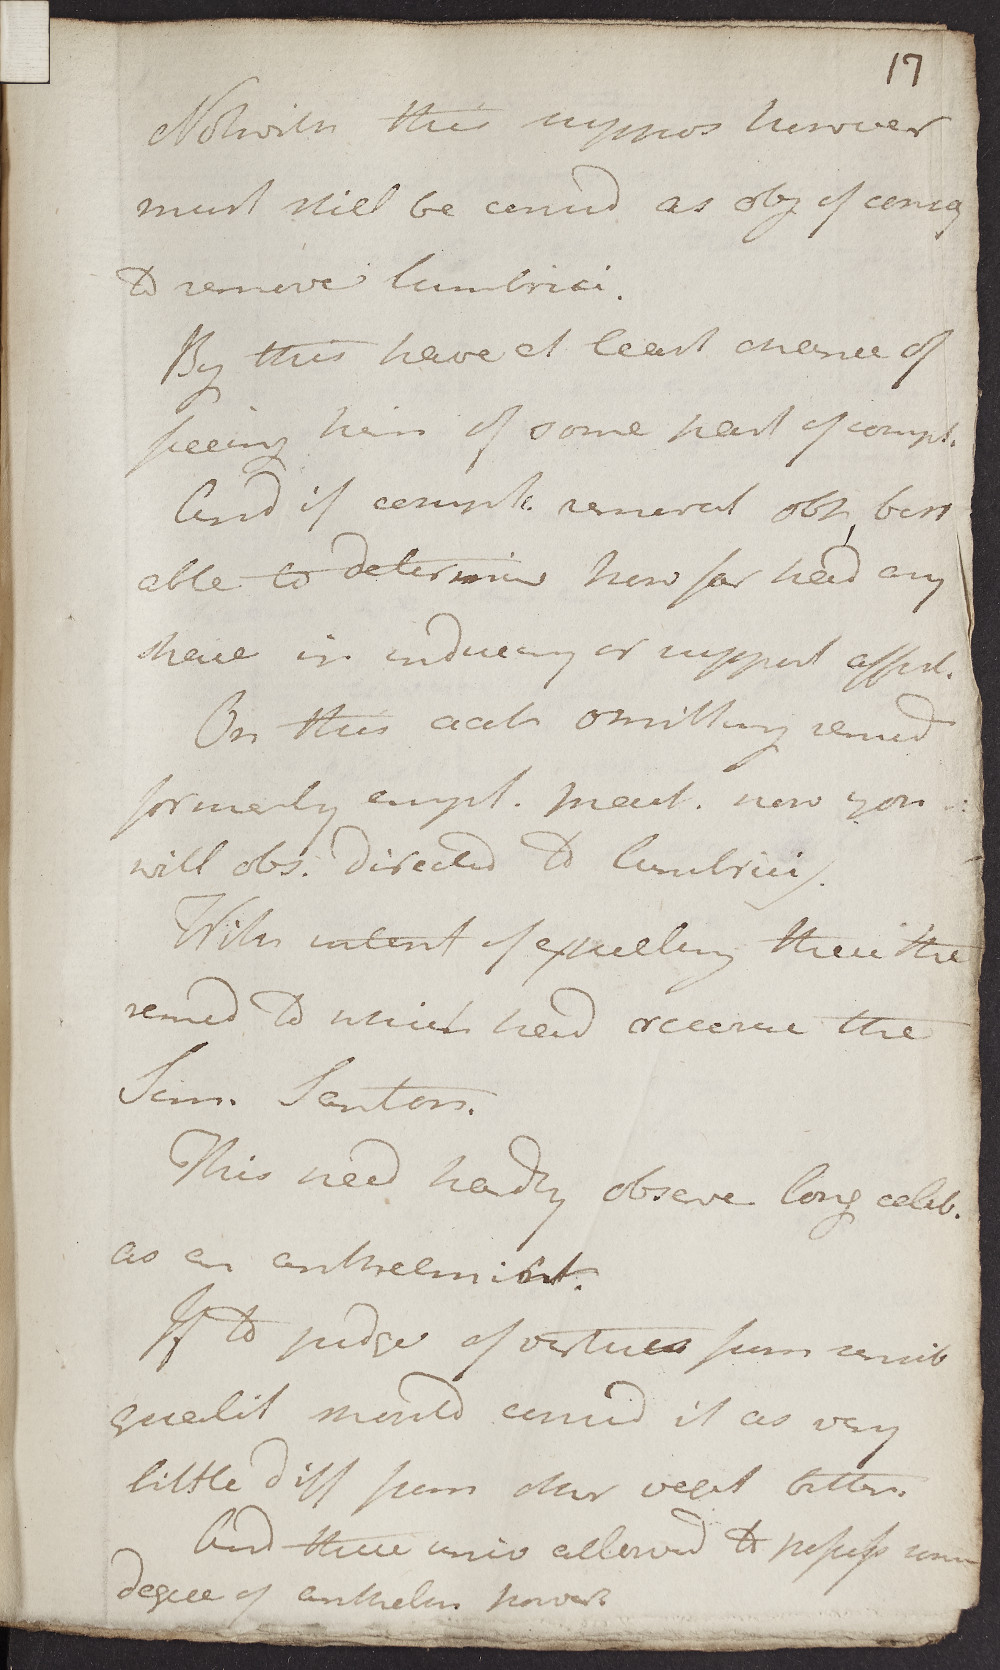 17
Notwith this suppos however
must still be consid as obj of conseq
to remove lumbrici.
By this have at least chance of
freeing him of some part of compl.
And if compl. removal obt, best
able to determine how far had any
share in inducing or support affect.
On this acct omitting remed
formerly empl. pract. now you
will obs. directed to lumbrici.
With intent of expelling these the
remed to which had recourse the
Sem. Santon.
This need hardly observe long celeb.
as an anthelmint.
If to judge of virtues from sensib
qualit should consid it as very
little diff from other veget bitters.
And these univ allowed to possess some
degree of anthelm powers